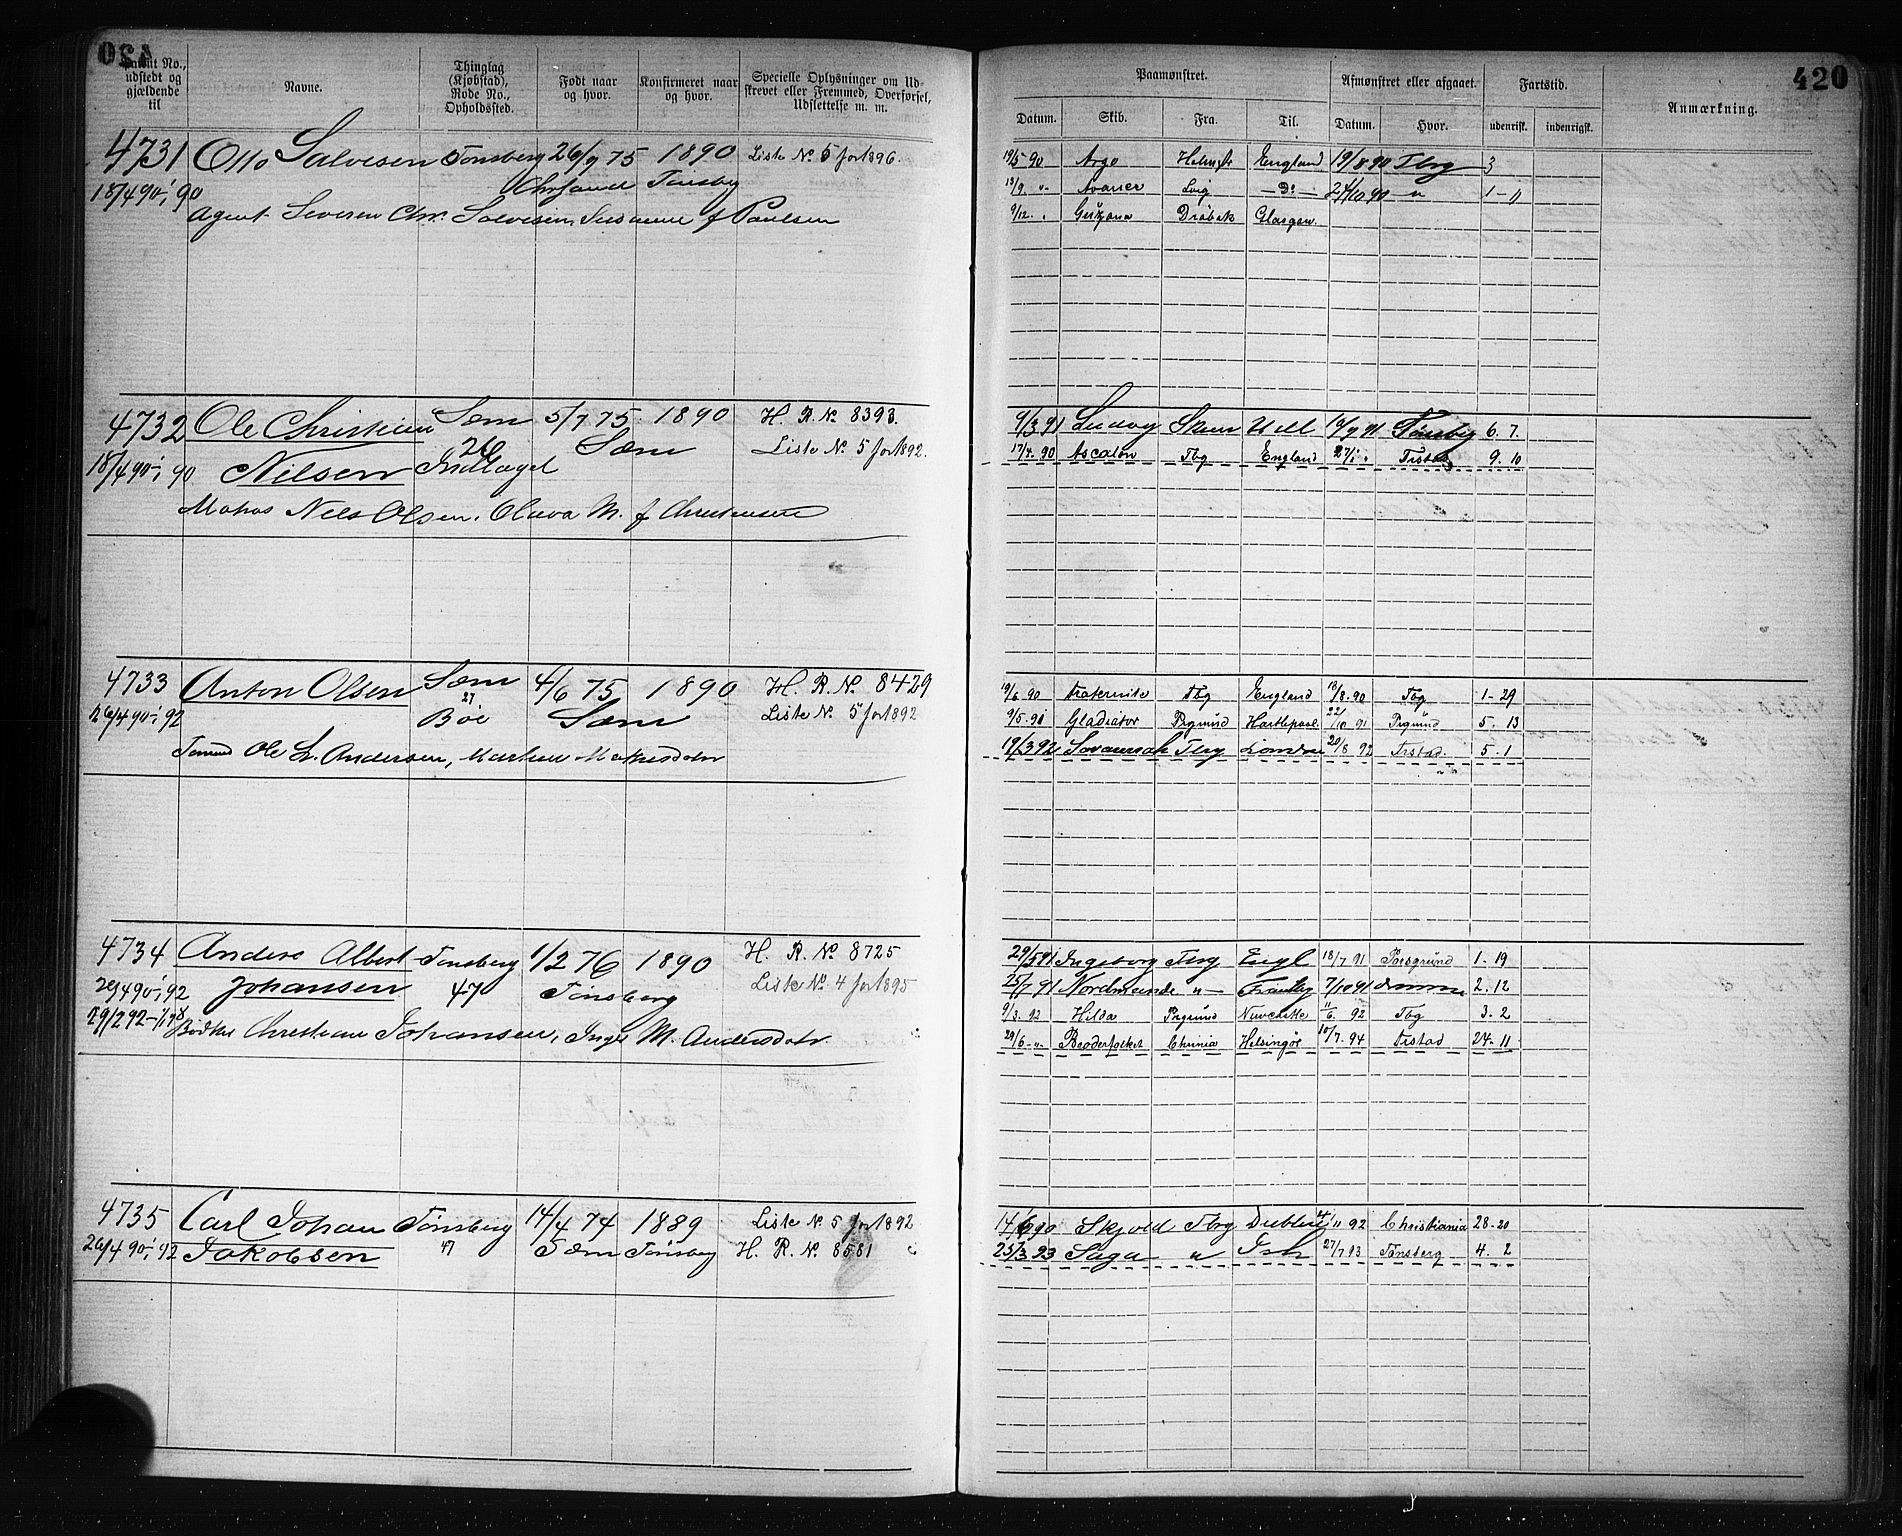 420
Patent No., udstedt og gjældende til
Navne.
Thinglag (Kjøbstad), Rode No., Opholdssted.
Født naar og hvor.
Konfirmeret naar og hvor.
Specielle Oplysninger om Udskrevet eller Fremmed, Overførsel, Udslettelse m. m.
4731 Otto Salvesen Tønsberg 26/9 75 1890 Liste No 5 for 1896.
18/4 90 i 90 Tønsbg
Agent Severin Chr. Salvesen, Susanne f Paulsen
4732 Ole Christian Sæm 5/7 75 1890 H. R. No 8393.
26 Sæm Liste No 5 for 1892.
18/4 90 i 90 Nilsen Indlaget
Matros Nels Olsen, Olava M. f Christensen
4733 Anton Olsen Sæm 4/6 75 1890 H. R. No 8429
27
26/4 90 i 92 Bøe Sæm Liste No 5 for 1892
Ole L. Andersen, Mathisdatr
4734 Anders Albert Tønsberg 1/2 76 1890 H. R. No 8725
29/4 90 i 92 Johansen 47 Tønsberg Liste No 4 for 1895
29/2 92
Bødker Christian Johansen, Inger M. Andersdatr
4735 Carl Johan Tønsberg 14/4 74 1889 Liste No 5 for 1892
26/4 90 i 92 Jakobsen 47 Sæm Tønsberg H. R. No 8581
420
Paamønstret.
Afmønstret eller afgaaet.
Fartstid.
Anmærkning.
Datum. Skib. Fra. Til. Datum. Hvor. udenrisk. indenrigsk.
19/5 90 Argo Holmst England 19/8 90 Tbg 3
13/9 " Avance Lvig — Do — 24/10 90 " 1 - 11
9/12 " Drøbak Glasgow.
9/3 91 Ludvig Skien Hull 19/7 91 Tønsbg 6. 7.
17/4. 90 Ascalon Tbg England 27/1 Frstad 9. 10
19/6 90 Fraternite Tbg England 18/8. 90 Tbg 1 - 29
9/5. 91 Gladiator Prgrund Hartlepool 22/10 91 Prgrund 5. 13
19/3 92 Savannah Tbg London 20/8 92 Frstad. 5. 1
29/5 91 Ingeborg Tbg Engl 18/7 91 Porsgrund 1 - 19
25/7 91 Nordmænde " — 7/10 91 2. 12
9/3. 92 Hilda Prgrund Newcastle 11/6. 92 Tbg 3. 2
29/6. " Broderfolket Chania Helsingør 10/7. 94 Frstad 24 - 11
14/6 90 Skjold Tbg Dublin 4/11 92 Christiania 28 - 20
25/3 93 Saga " 27/7 93 Tønsberg 4. 2